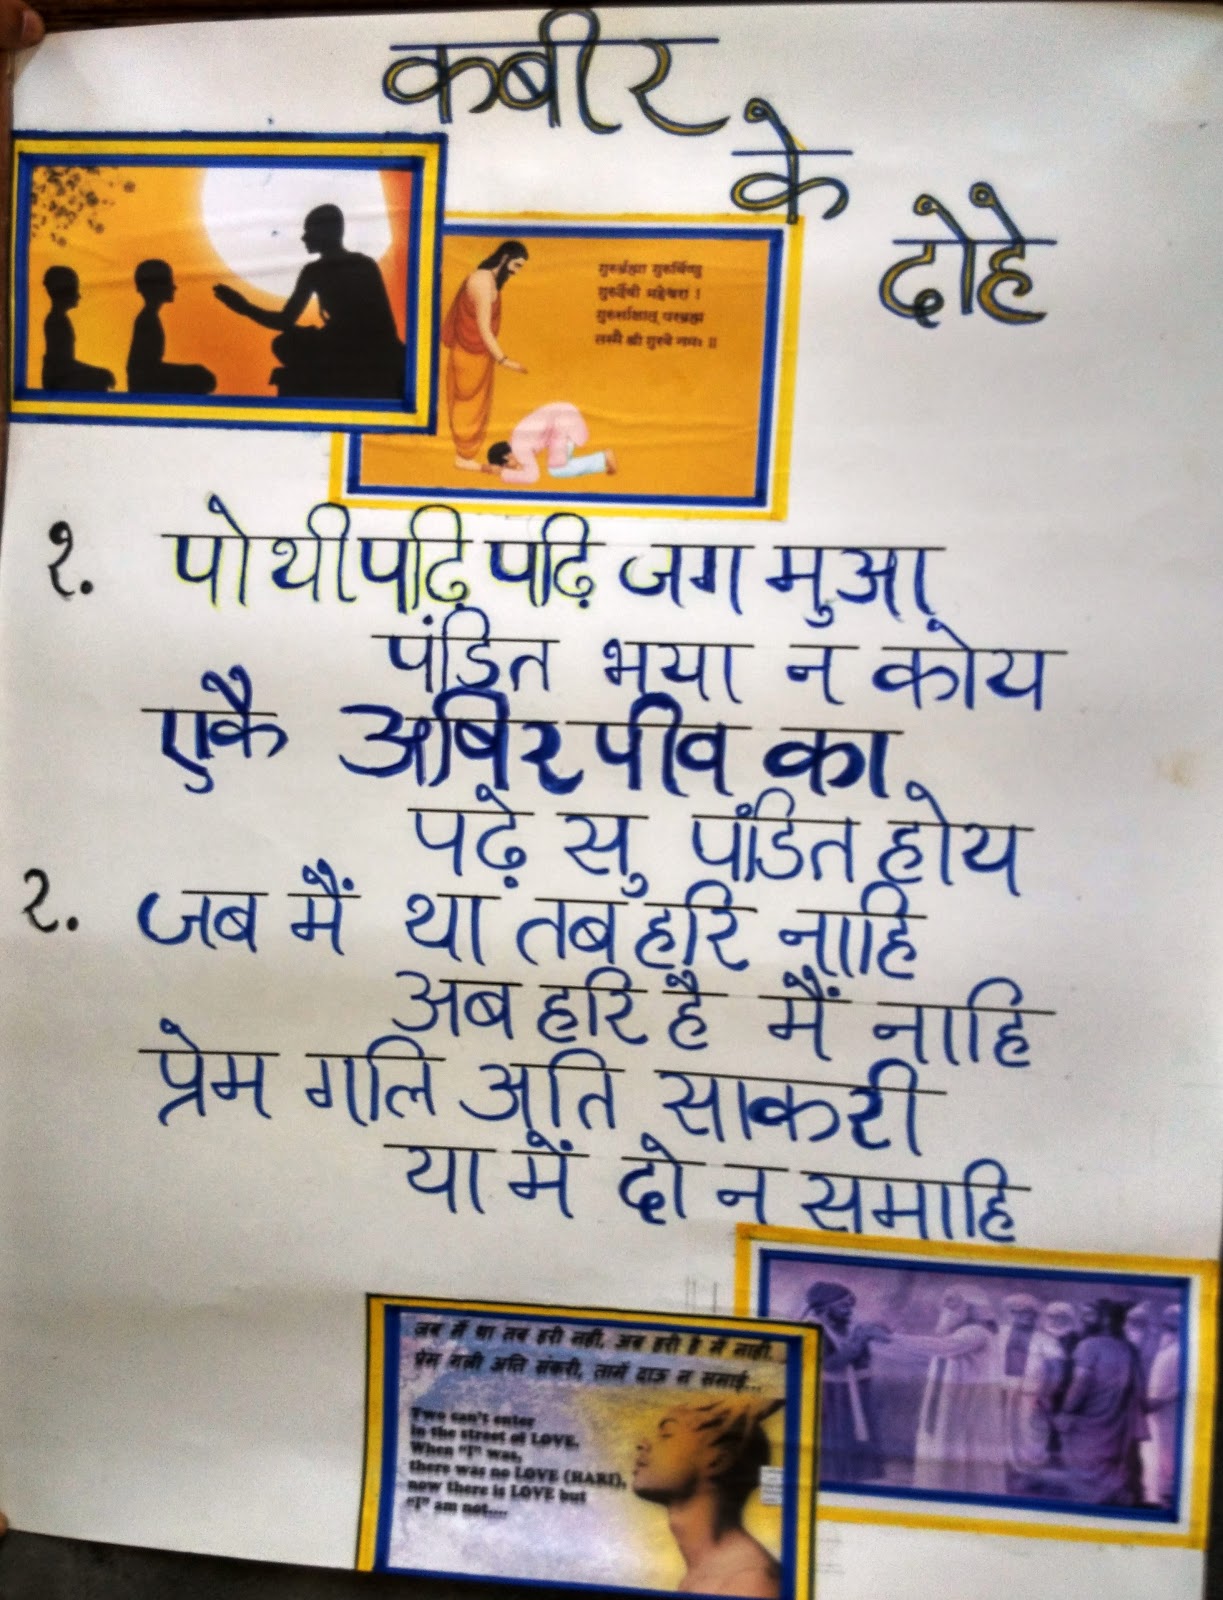 कबीर
के
दोहे
गुरुर्ब्रह्मा गुरुर्विष्णु
गुरुर्देवो महेश्वरा ।
गुरुर्साक्षात् परब्रह्म
तस्मै श्री गुरुवे नमः ॥
१. पोथी पढ़ि पढ़ि जग मुआ
पंडित भया न कोय
एकै अषिर पीव का
पढ़े सु पंडित होय
२. जब मैं था तब हरि नाहि
अब हरि है मैं नाहि
प्रेम गलि अति साकरी
या में दो न समाहि
जब में था तब हरी नही, अब हरी है में नाही.
प्रेम गली अति संकरी, तामें दाऊ न समाई...
Two can't enter
in the street of LOVE.
When "I" was,
there was no LOVE (HARI),
now there is LOVE but
"I" am not....